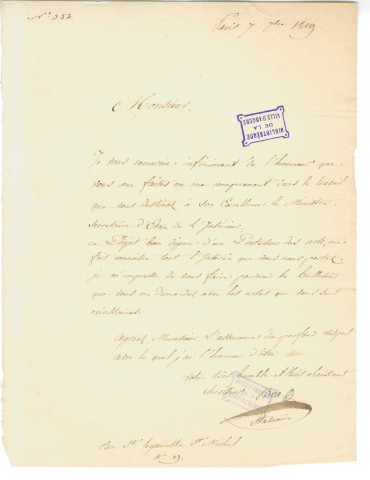 N° 352
Paris 7 7bre 1819
Monsieur,
BIBLIOTHÈQUE
DE LA
VILLE D'ANGERS
Je vous remercie infiniment de l'honneur que
vous me faites en me comprenant dans le travail
que vous destinez à Son Excellence le Ministre
Secrétaire d'Etat de l'Intérieur,
ce Projet bien digne d'un Protecteur des arts, me
fait connaître tout l'intérêt que vous nous portez,
je m'empresse de vous faire parvenir le Bulletin
que vous me demandez avec les notes qui vous sont
nécéssaires.
Agréez, Monsieur, l'assurance du profond respect
avec lequel j'ai l'honneur d'être
Votre très humble et très obéissant
Serviteur
Rue St hyacinthe St Michel
N° 19.